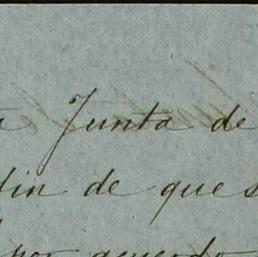 Junta de
fin de que s
por acuerdo